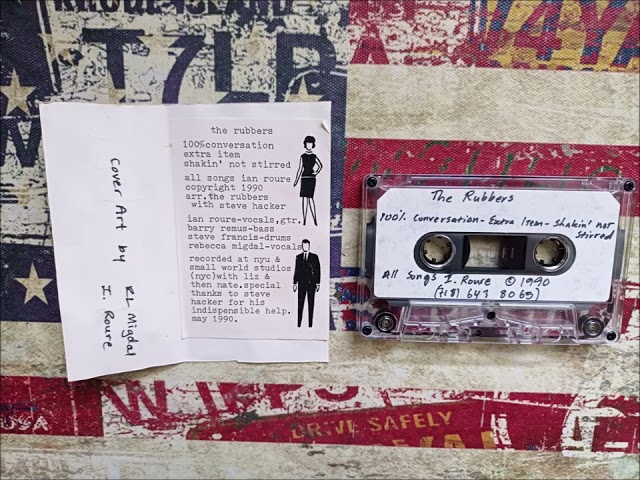 Cover Art by
RL Migdal
I. Roure
the rubbers
100%conversation
extra item
shakin' not stirred
all songs ian roure
copyright 1990
arr.the rubbers
with steve hacker
ian roure-vocals,gtr.
barry remus-bass
steve francis-drums
rebecca migdal-vocals
recorded at nyu &
small world studios
(nyc)with liz &
then nate.special
thanks to steve
hacker for his
indispensible help.
may 1990.
The Rubbers
100% Conversation - Extra Item - Shakin' not
Stirred
All Songs I. Roure © 1990
(718) 643 8065)
DRIVE SAFELY
USA